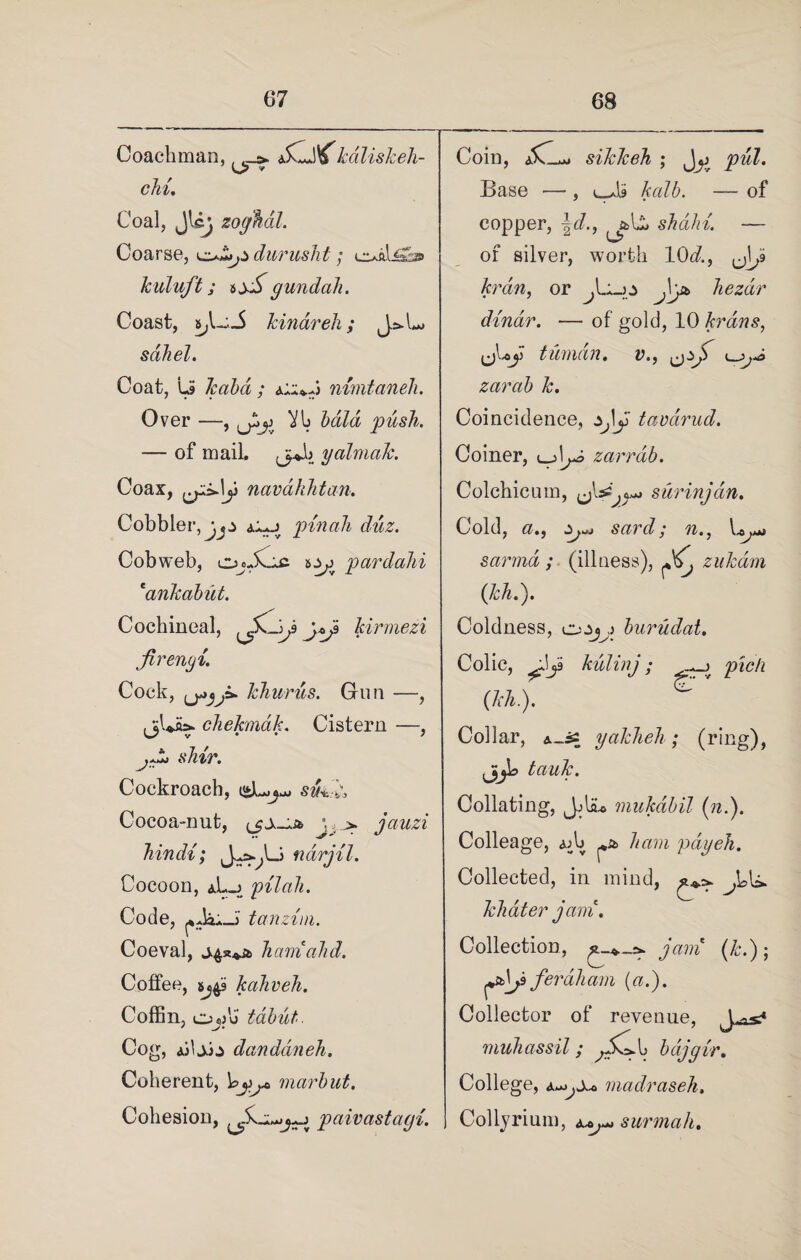 67
Coachman, كالسكه چی káliskeh-
chí.
Coal, زغال zoghál.
Coarse, درشت durusht ; کلفت
kuluft ; گنده gundah.
Coast, کناره kináreh ; ساحل
sáhel.
Coat, قبا kabá ; نیمتنه nímtaneh.
Over —, بالا پوش bálá púsh.
— of mail. یلمق yalmak.
Coax, نواختن navákhtan.
Cobbler, پینه دوز pínah dúz.
Cobweb, پرده عنکبوت pardahi
'ankabút.
Cochineal, قرمز فرنگی kirmezi
firengí.
Cock, خروس khurús. Gun —,
چقماق chekmák. Cistern —,
شیر shír.
Cockroach, سوسك
Cocoa-nut, جوز هندی jauzi
hindí ; نارجیل nárjíl.
Cocoon, پیله pílah.
Code, تنظیم tanzím.
Coeval, همعهد ham'ahd.
Coffee, قهوه kahveh.
Coffin, تابوت tábút.
Cog, دندانه dandáneh.
Coherent, مربوط marbut.
Cohesion, پیوستگی paivastagí.
68
Coin, سکه sikkeh ; پول púl.
Base — , قلب kalb. — of
copper, ½d., شاهی sháhí. —
of silver, worth 10d., قران
krán, or هزار دینار hezár
dínár. — of gold, 10 kráns,
تومان túmán. v., ضرب کردن
zarab k.
Coincidence, توارد tavárud.
Coiner, ضراب zarráb.
Colchicum, سورنجان súrinján.
Cold, a., سرد sard ; n., سرما
sarmá ; (illness), زکام zukám
(kh.).
Coldness, برودت burúdat.
Colic, قولنج kúlinj ; پیچ pích
(kh.).
Collar, یخه yakheh ; (ring),
طوق tauk.
Collating, مقابل mukábil (n.).
Colleage, هم پایه ham páyeh.
Collected, in mind, خاطر جمع
kháter jam'.
Collection, جمع jam' (k.) ;
فراهم feráham (a.).
Collector of revenue, محصل
muhassil ; باجگیر bájgír.
College, مدرسه madraseh.
Collyrium, سرمه surmah.